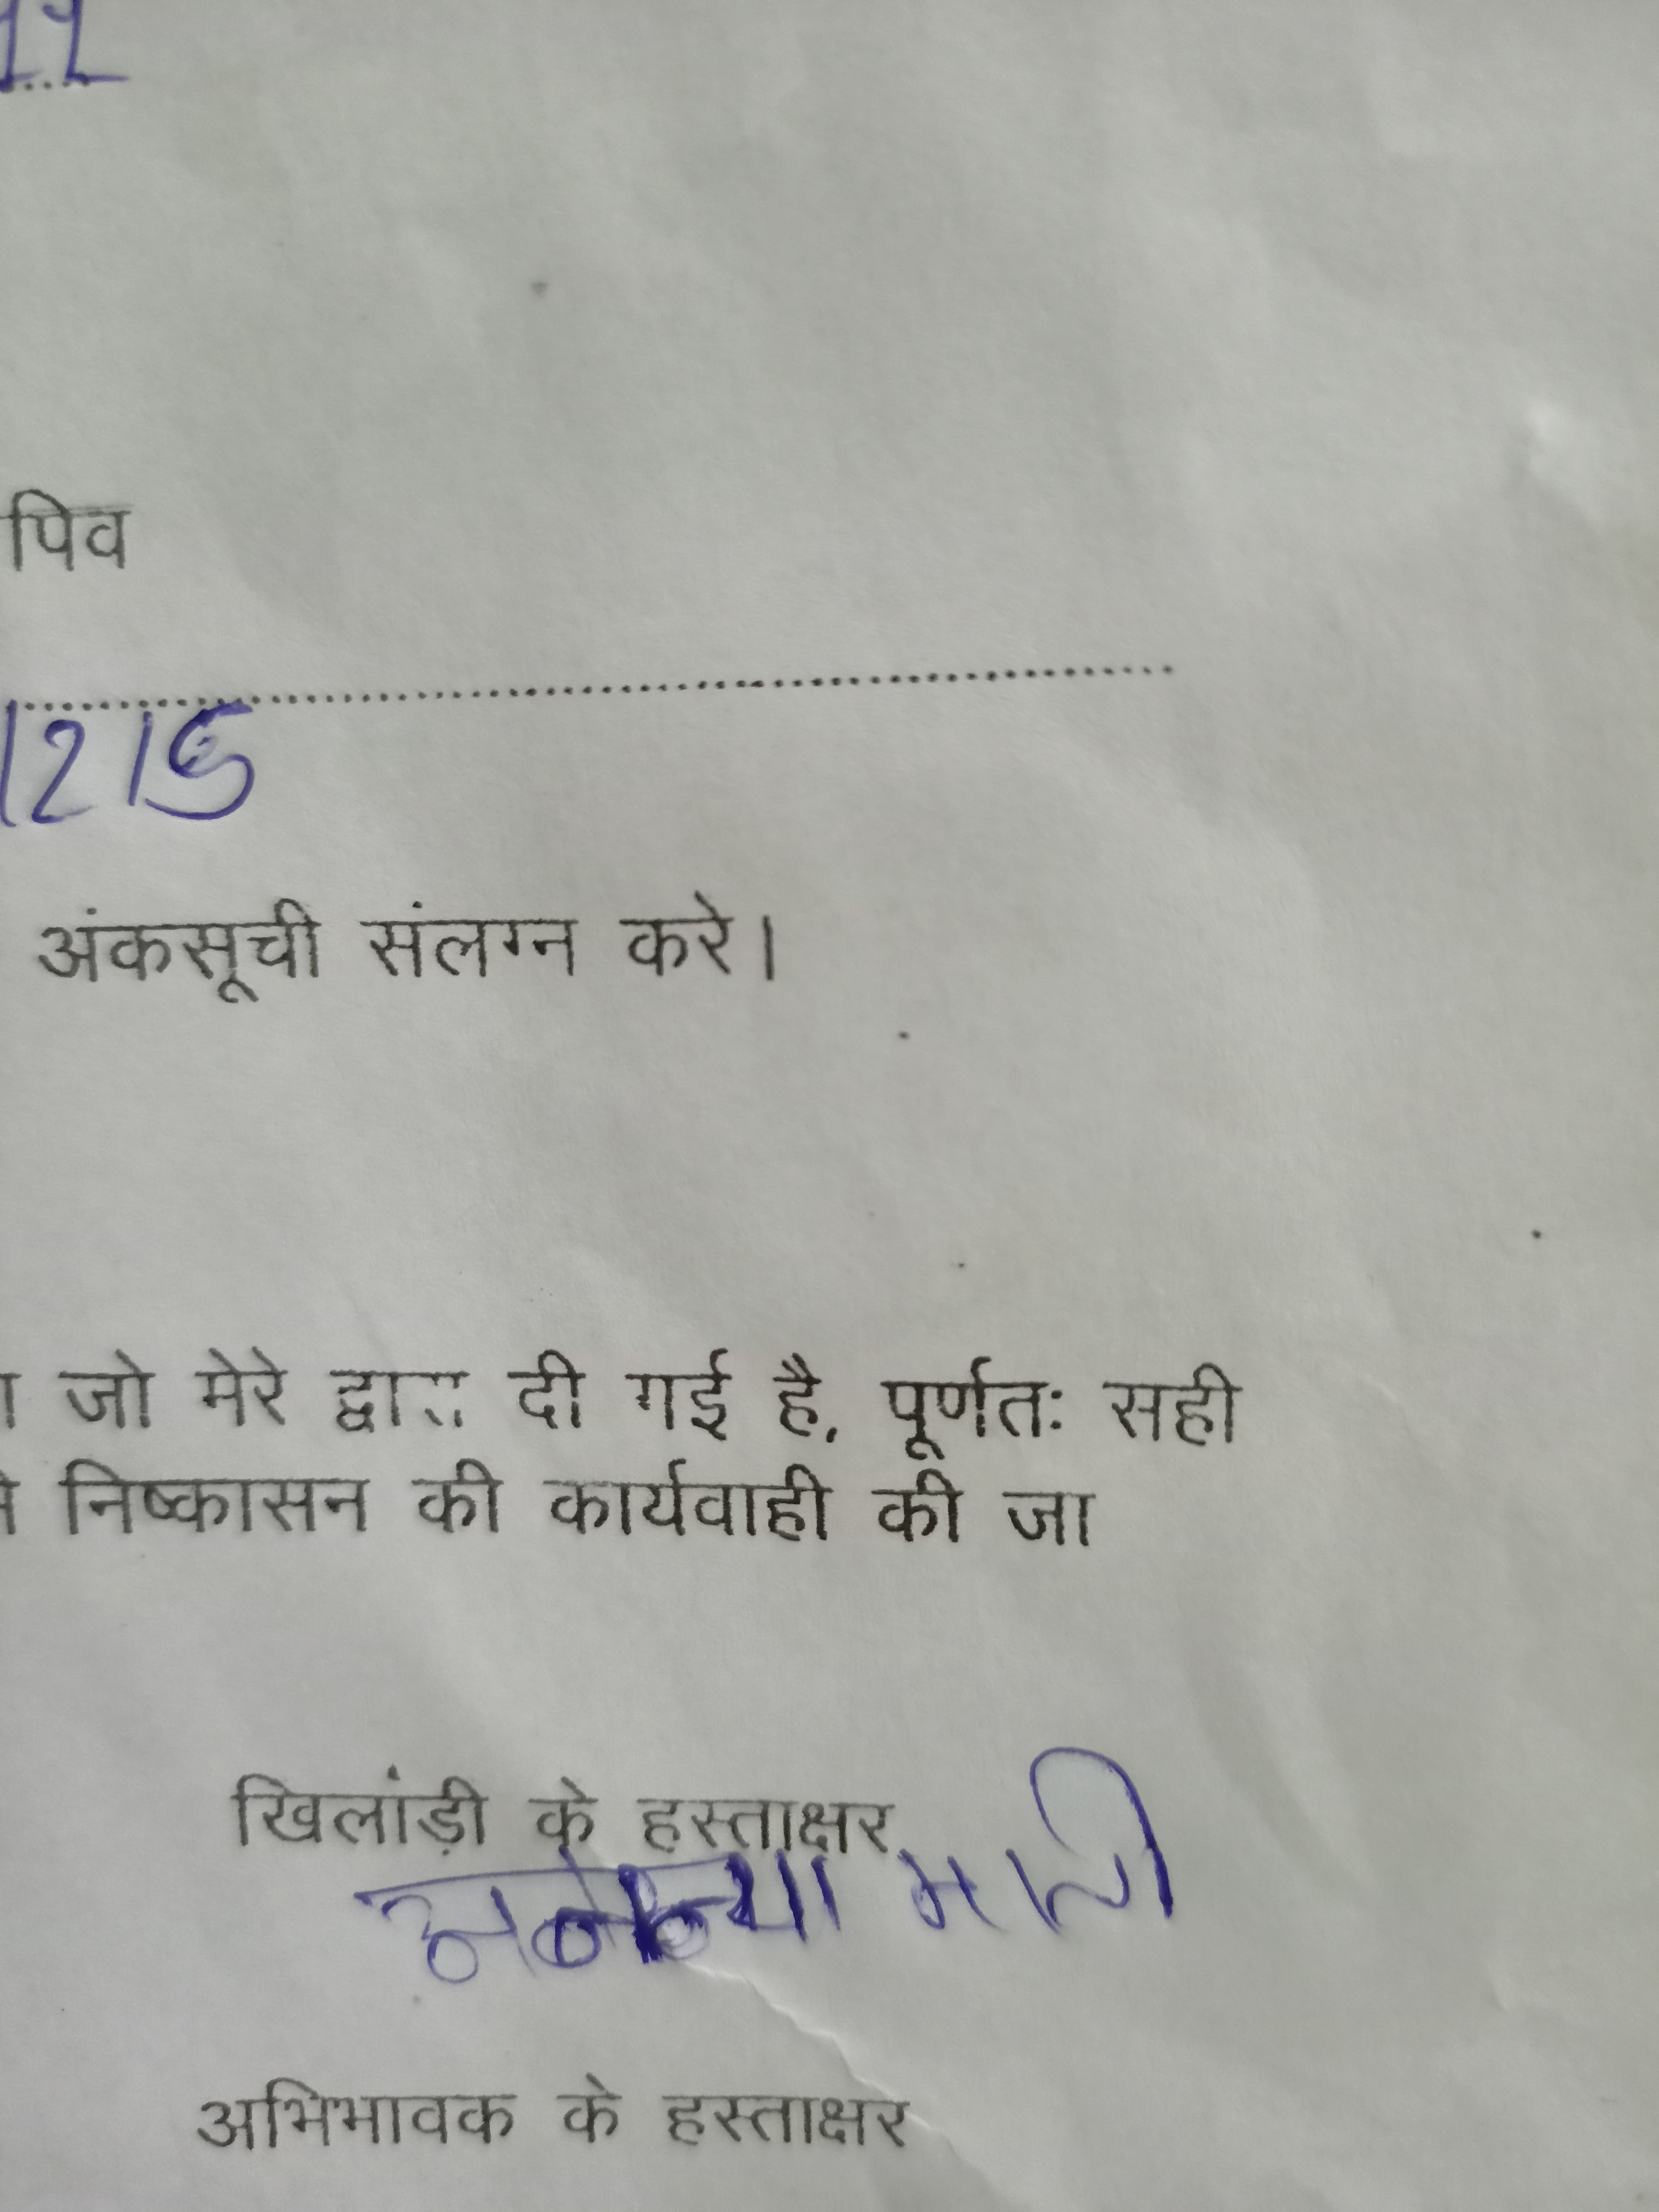 पिव
अंकसूची संलग्न करे।
जो मेरे द्वारा दी गई है, पूर्णतः सही
निष्कासन की कार्यवाही की जा
खिलांड़ी के हस्ताक्षर
अभिभावक के हस्ताक्षर